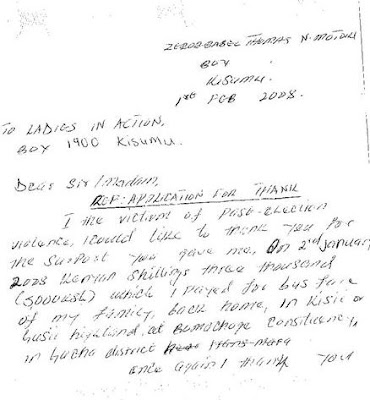 ZERUBABEL THOMAS N.
BOX
KISUMU.
1st FEB 2008.
TO LADIES IN ACTION,
BOX 1900 KISUMU.
Dear Sir/madam,
REF: APPLICATION FOR THANK
I the victim of Post-election
violence, I could like to thank you for
the support you gave me, On 2nd January,
2008 Kenyan shillings three thousand
(3000ksh) which I payed for bus fare
of my family, back home, in Kisii or
Gusii highland, at Bomachoge constituency,
in Gucha district
once again I thank you